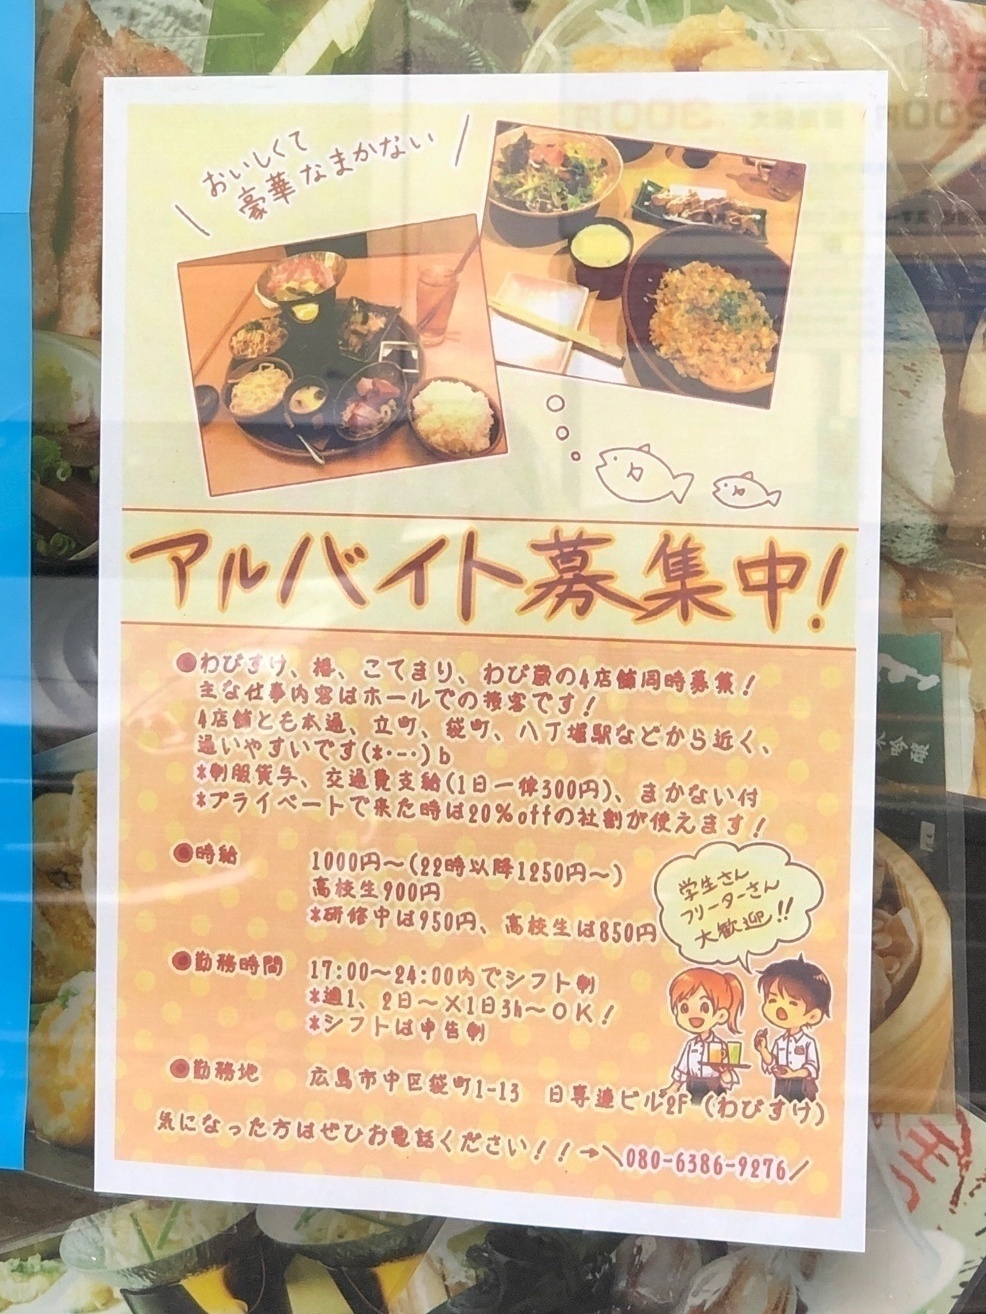 おいしくて
豪華なまかない
アルバイト募集中!
●わびすけ、椿、こてまり、わび蔵の4店舗同時募集!
主な仕事内容はホールでの接客です!
4店舗とも本通、立町、袋町、八丁堀駅などから近く、
通いやすいです(*・ー・)b
*制服貸与、交通費支給(1日一律300円)、まかない付
*プライベートで来た時は20%offの社割が使えます!
●時給 1000円〜(22時以降1250円〜)
高校生900円
*研修中は950円、高校生は850円
学生さん
フリーターさん
大歓迎!!
●勤務時間 17:00〜24:00内でシフト制
*週1、2日〜×1日3h〜OK!
*シフトは申告制
●勤務地 広島市中区袋町1-13 日専連ビル2F(わびすけ)
気になった方はぜひお電話ください!!→\080-6386-9276/
300円
吟醸